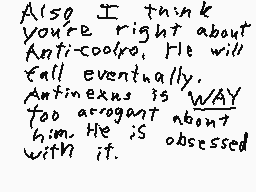 Also I think
you're right about
Anti-coolro. He will
fall eventually.
Antinexus is WAY
too arrogant about
him. He is obsessed
with it.